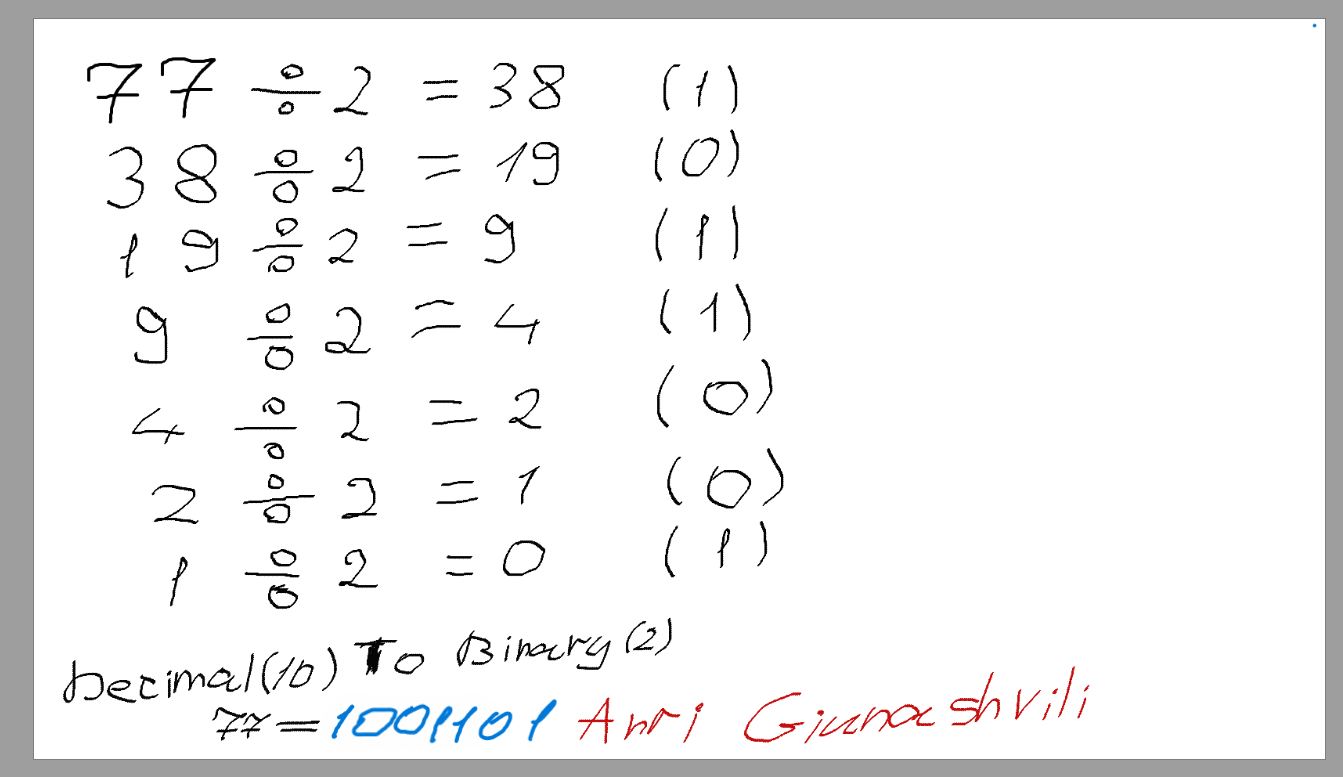 77 ÷ 2 = 38 (1)
38 ÷ 2 = 19 (0)
19 ÷ 2 = 9 (1)
9 ÷ 2 = 4 (1)
4 ÷ 2 = 2 (0)
2 ÷ 2 = 1 (0)
1 ÷ 2 = 0 (1)
Decimal(10) To Binary(2)
77 = 1001101 Anri Giunashvili